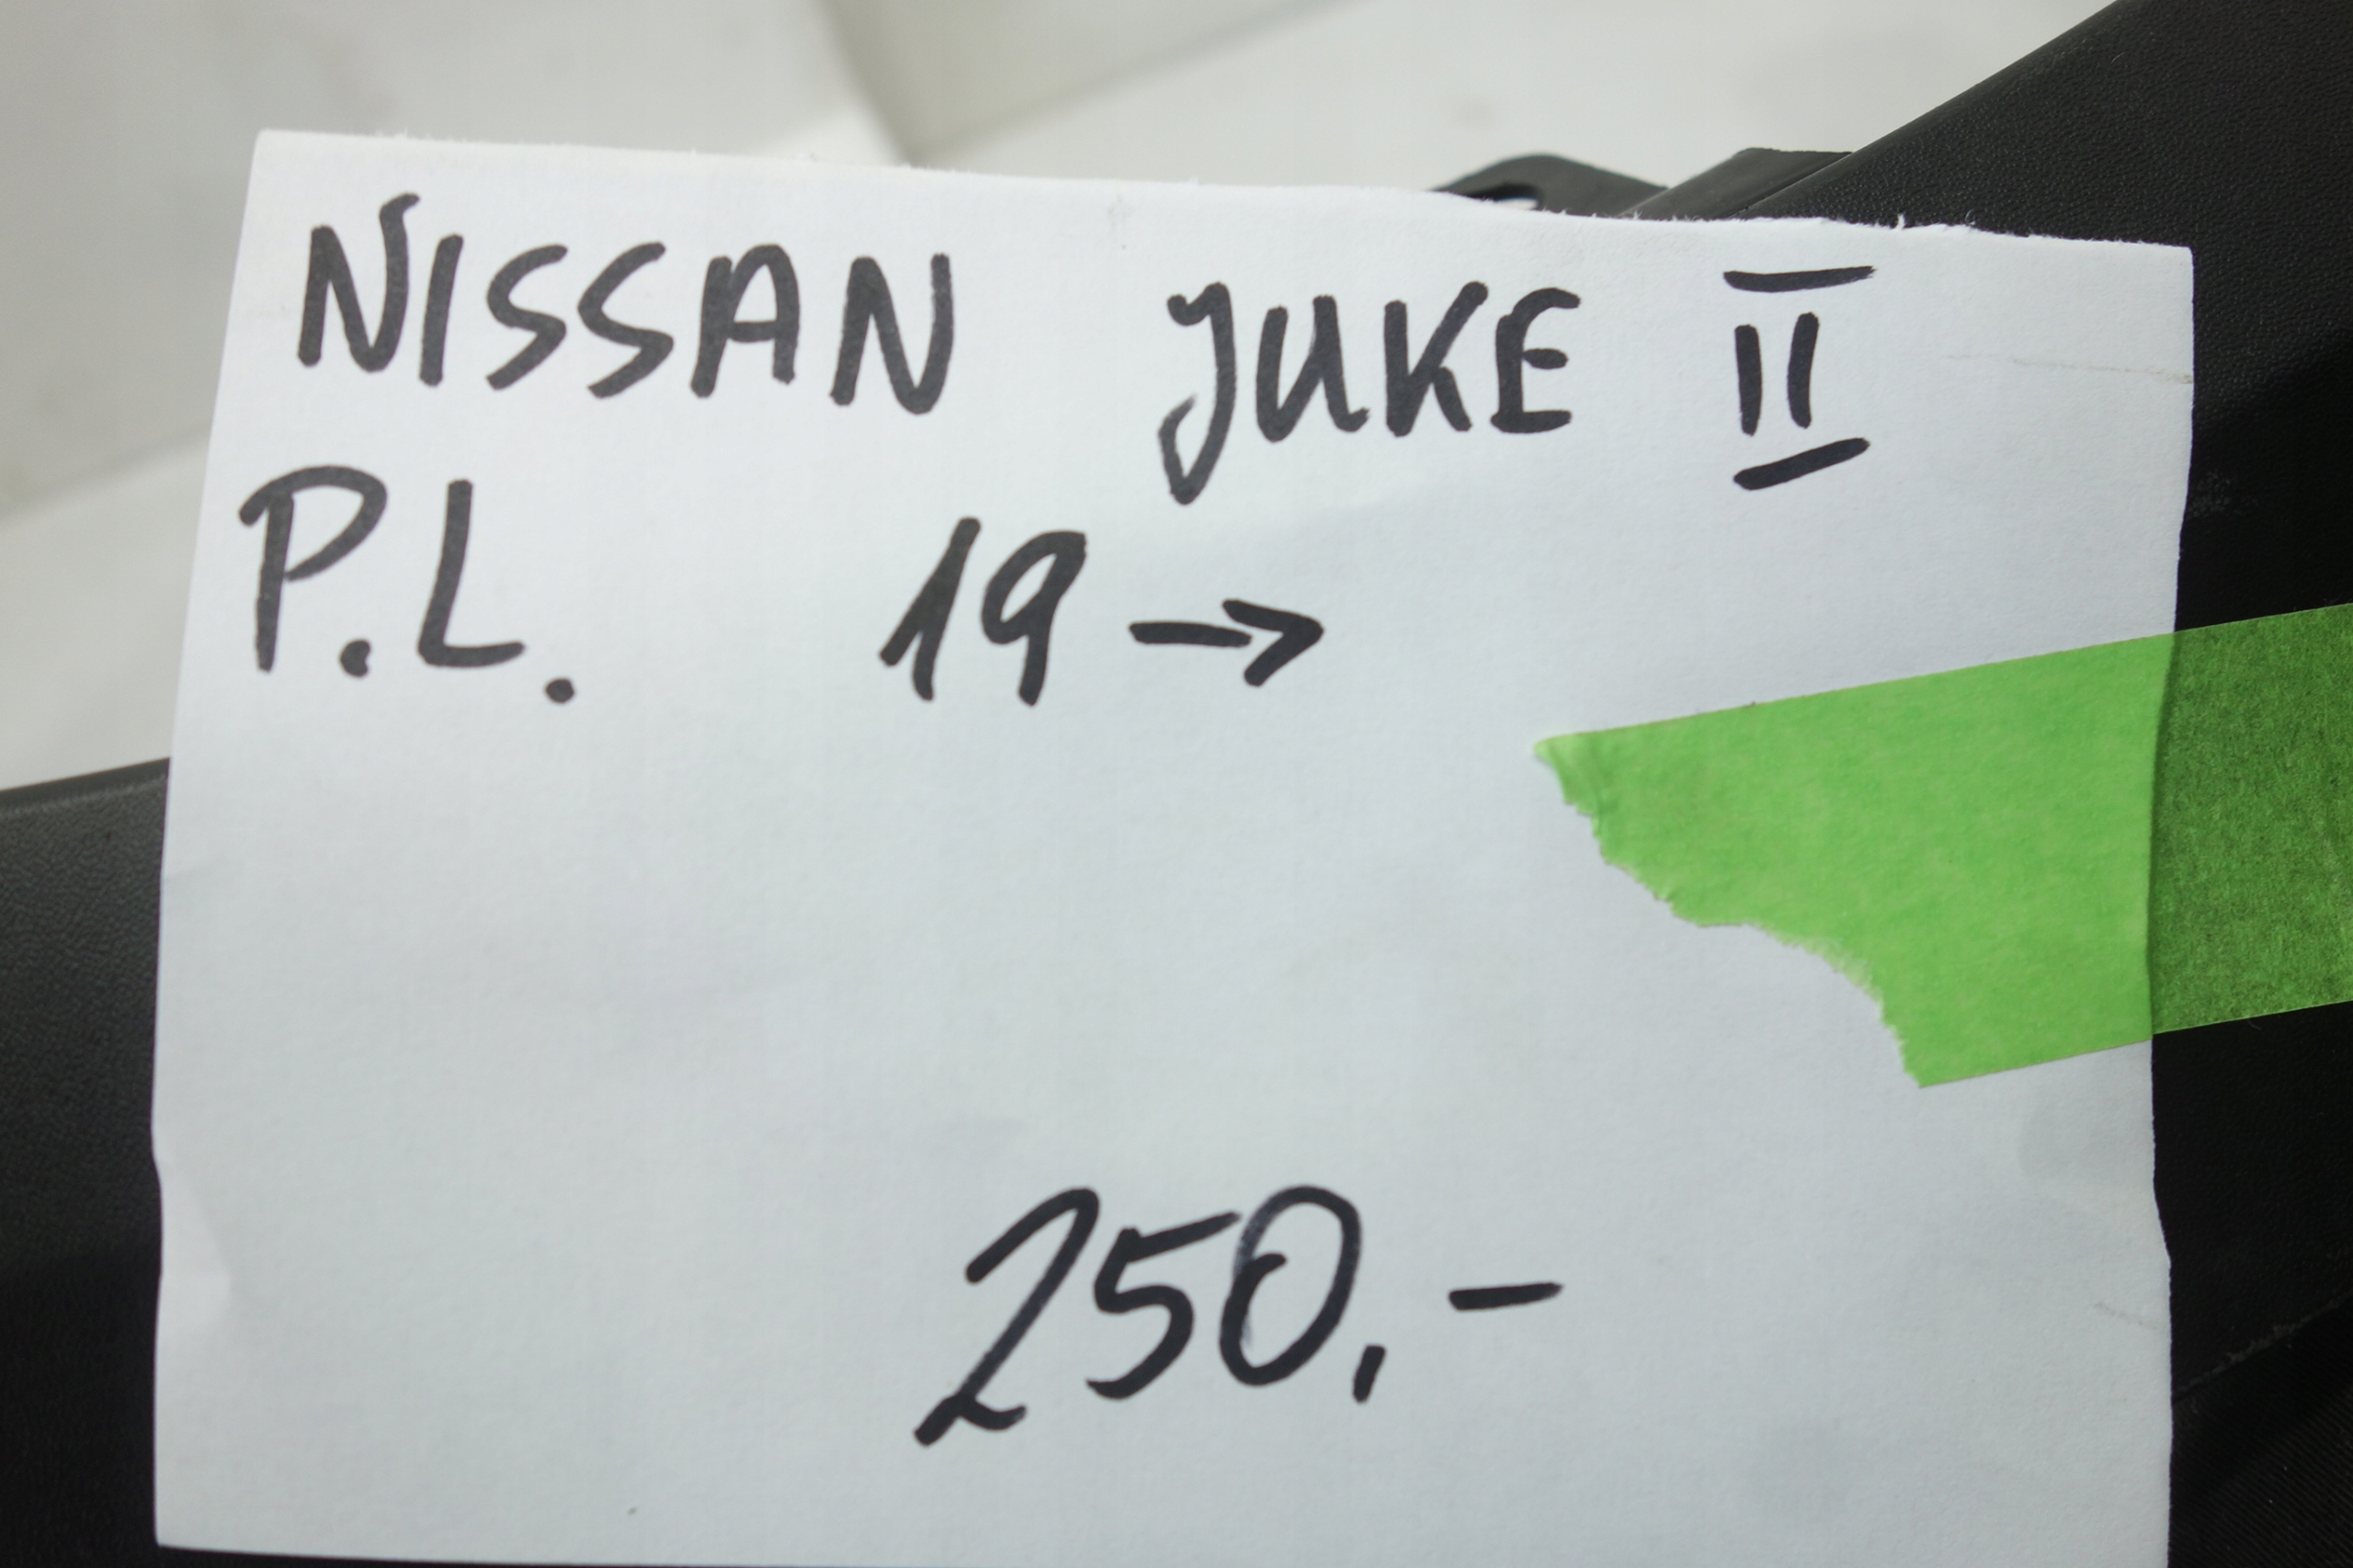 NISSAN JUKE II
P.L. 19 →
250.-